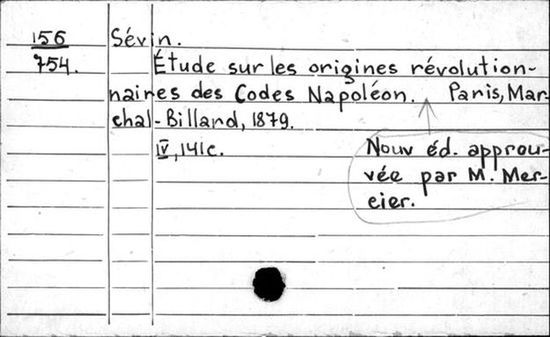 156 Sévin.
754. Étude sur les origines révolution-
naires des Codes Napoléon. Paris, Mar-
chal-Billard, 1879.
IV, 141c.
Nouv éd. approu-
vée par M. Mer-
cier.